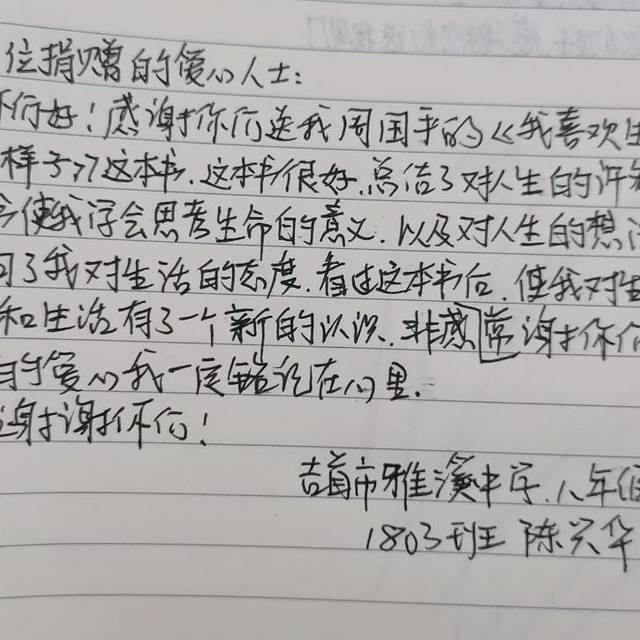 位捐赠的爱心人士:
你们好!感谢你们送我周国平的《我喜欢生
样子》这本书.这本书很好,总结了对人生的许
使我学会思考生命的意义.以及对人生的想法
了我对生活的态度.看过这本书后,使我对生
和生活有了一个新的认识.非感常谢你们
的爱心我一定铭记在心里.
谢谢你们!
吉首市雅溪中学.八年级
1803班 陈兴华